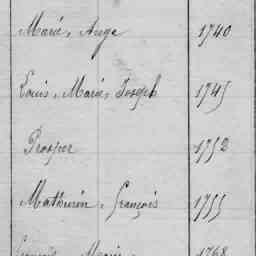 Marie, Ange 1740
Louis, Marie, Joseph 1745
Prosper 1752
Mathurin, François 1755
1768